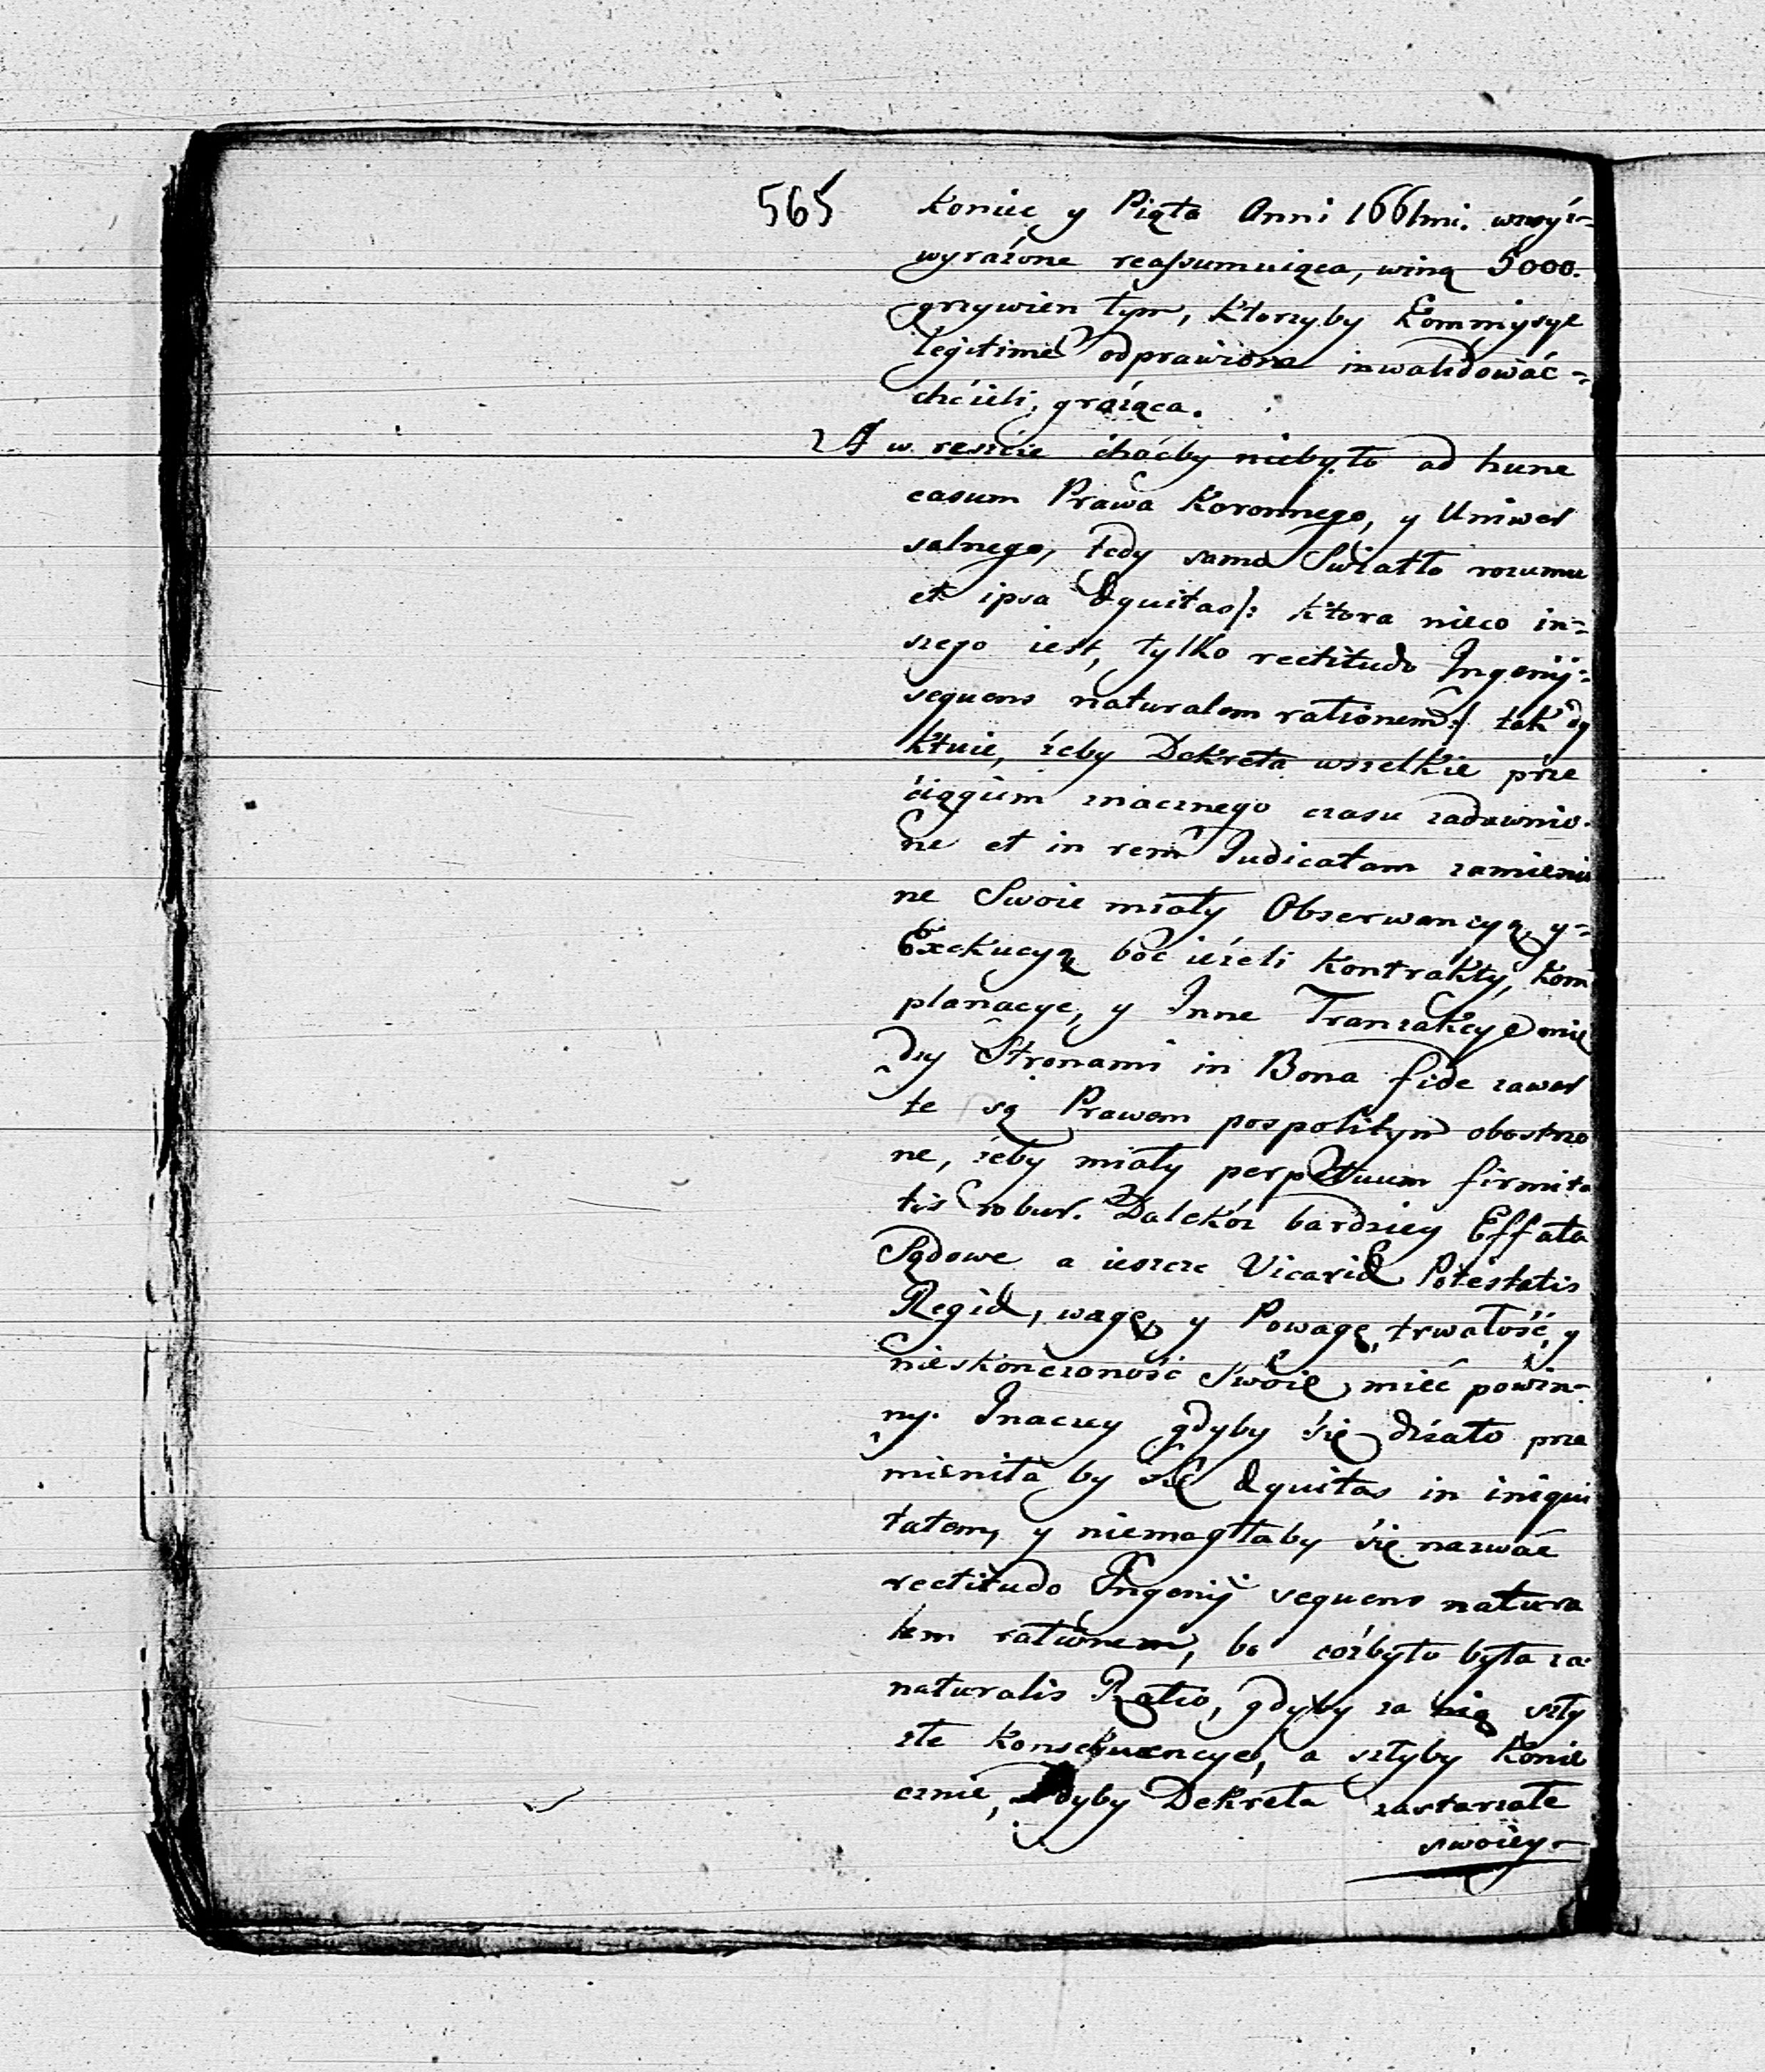 565
koniec y Piąta Anni 1661mi. wzwyż=
wyrażone reassumuiąca, winą 5000.
grzywien tym, ktorzyby Kommysye
legitime odprawione inwalidować=
chcieli, grożąca.
A w reszcie choćby niebyło ad hunc
casum Prawa Koronnego, y Uniwer
salnego, tedy samo Swiatło rozumu
et ipsa Æquitas/: ktora nieco in=
szego iest, tylko rectitudo Ingenij=
sequens naturalem rationem:/ tak dy
ktuie, żeby Dekreta wszelkie prze
ciągiem znacznego czasu zadawnio-
ne et in rem Iudicatam zamienio
ne Swoie miały Obserwancyą, y=
Exekucyą boć ieżeli Kontrakty, Kom
planacye, y Inne Tranzakcye mię
dzy Stronami in Bona fide zawar
te są Prawem pospolitym obostrzo
ne, żeby miały perpetuum firmita
tis robur. Dalekoż bardziey Effata
Sądowe a ieszcze Vicariæ Potestatis
Regiæ, wagę, y Powagę, trwałość, y
nieskończoność Swoię, mieć powin=
ny. Inaczey gdyby się działo prze
mieniła by się Æquitas in iniqui
tatem, y niemogłaby się nazwać
rectitudo Ingenij sequens natura
lem rationem, bo cożbyto była za
naturalis Ratio, gdyby za nią szły
złe konsekwencye, a szłyby Konie
cznie, gdyby Dekreta zastarzałe
swoiey-